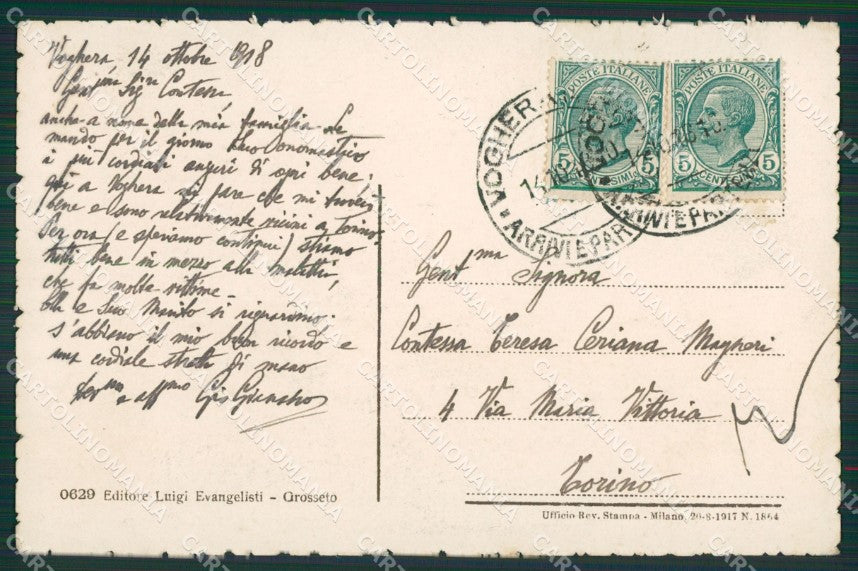 Voghera, 14 ottobre 1918
Gent.ma Sig.ra Contessa,
anche a nome della mia famiglia Le
mando per il giorno Suo Onomastico
i più cordiali auguri di ogni bene:
qui a Voghera mi pare che mi trovi
bene e sono relativamente vicini a Torino.
Per ora (e speriamo continui) stiamo
tutti bene in mezzo alla malattia,
che fa molte vittime.
Ella e Suo Marito si riguardino.
S'abbiano il mio buon ricordo e
una cordiale stretta di mano
e aff.mo
0629 Editore Luigi Evangelisti - Grosseto
POSTE ITALIANE
5 CENTESIMI 5
POSTE ITALIANE
5 CENTESIMI 5
VOGHERA
14.10
ARRIVI E PAR
ARRIVI E PARTENZE
Gent.ma Signora
Contessa Teresa Ceriana Mayneri
4 Via Maria Vittoria
Torino
Ufficio Rev. Stampa - Milano, 20-8-1917 N. 1864
CARTOLINOMANIA